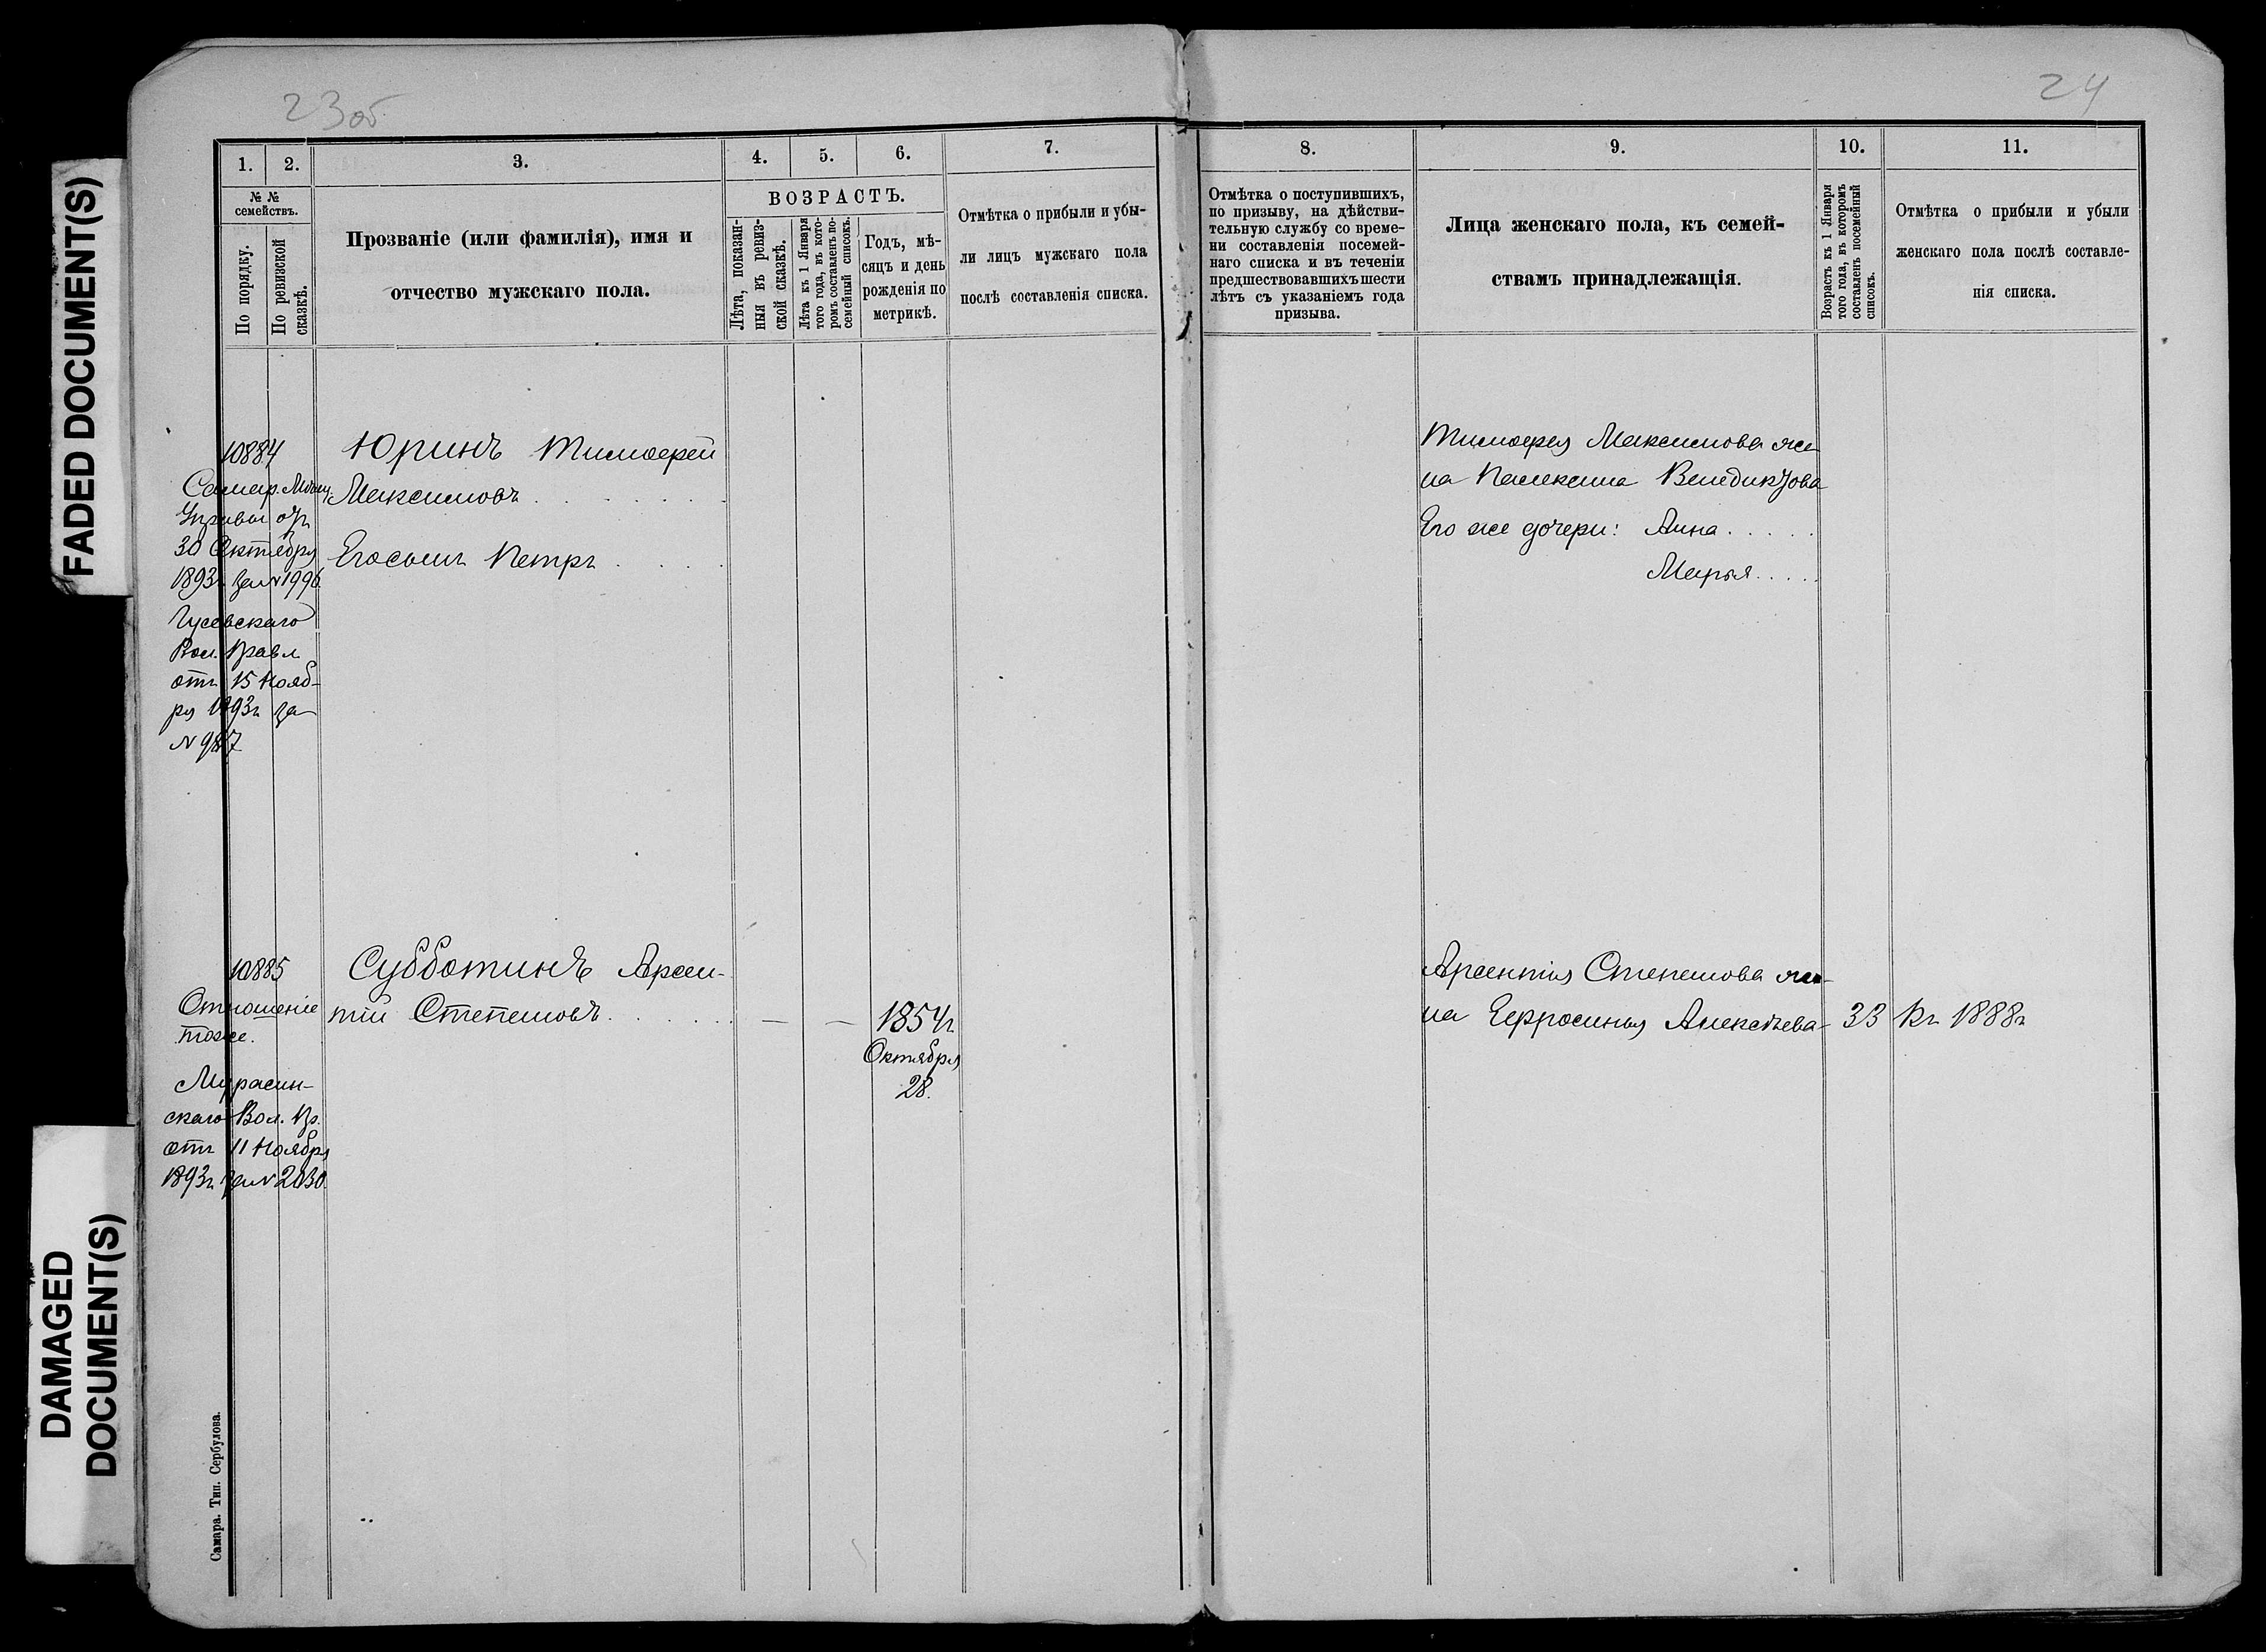 23об
24
FADED DOCUMENT(S)
DAMAGED
DOCUMENT(S)
1.
2.
3.
4.
5.
6.
7.
8.
9.
10.
11.
№ №
семействъ.
По порядку.
По ревизской
сказкѣ.
Прозваніе (или фамилія), имя и
отчество мужскаго пола.
ВОЗРАСТЪ.
Лѣта, показан-
ныя въ ревиз-
ской сказкѣ.
Лѣта къ 1 Января
того года, въ кото-
ромъ составленъ по-
семейный списокъ.
Годъ, мѣ-
сяцъ и день
рожденія по
метрикѣ.
Отмѣтка о прибыли и убы-
ли лицъ мужскаго пола
послѣ составленія списка.
Отмѣтка о поступившихъ,
по призыву, на дѣйстви-
тельную службу со време-
ни составленія посемей-
наго списка и въ теченіи
предшествовавшихъ шести
лѣтъ съ указаніемъ года
призыва.
Лица женскаго пола, къ семей-
ствамъ принадлежащія.
Возрастъ къ 1 Января
того года, въ которомъ
составленъ посемейный
списокъ.
Отмѣтка о прибыли и убыли
женскаго пола послѣ составле-
нія списка.
10884
Самар. Мѣщ.
Управы от
30 Октября
1893г. за № 1996
Гусевскаго
Вол. Правл.
отъ 15 Нояб-
ря 1893г за
№
Юринъ Тимофей
Максимовъ . . . .
Его сынъ Петръ . . . .
Тимофея Максимова же-
на Венедиктова
Его же дочери: Анна . . . . .
Марья . . . .
10885
Отношеніе
тоже.
Мурасин-
скаго Вол. Пр.
отъ 11 Ноября
1893г за № 2030.
Субботинъ Арсен-
тій Степановъ . . . . .
— —
1854г
Октября
28.
Арсентія Степанова же-
на Ефросинья Алексѣева
33
Къ 1888г
Самара. Тип. Сербулова.